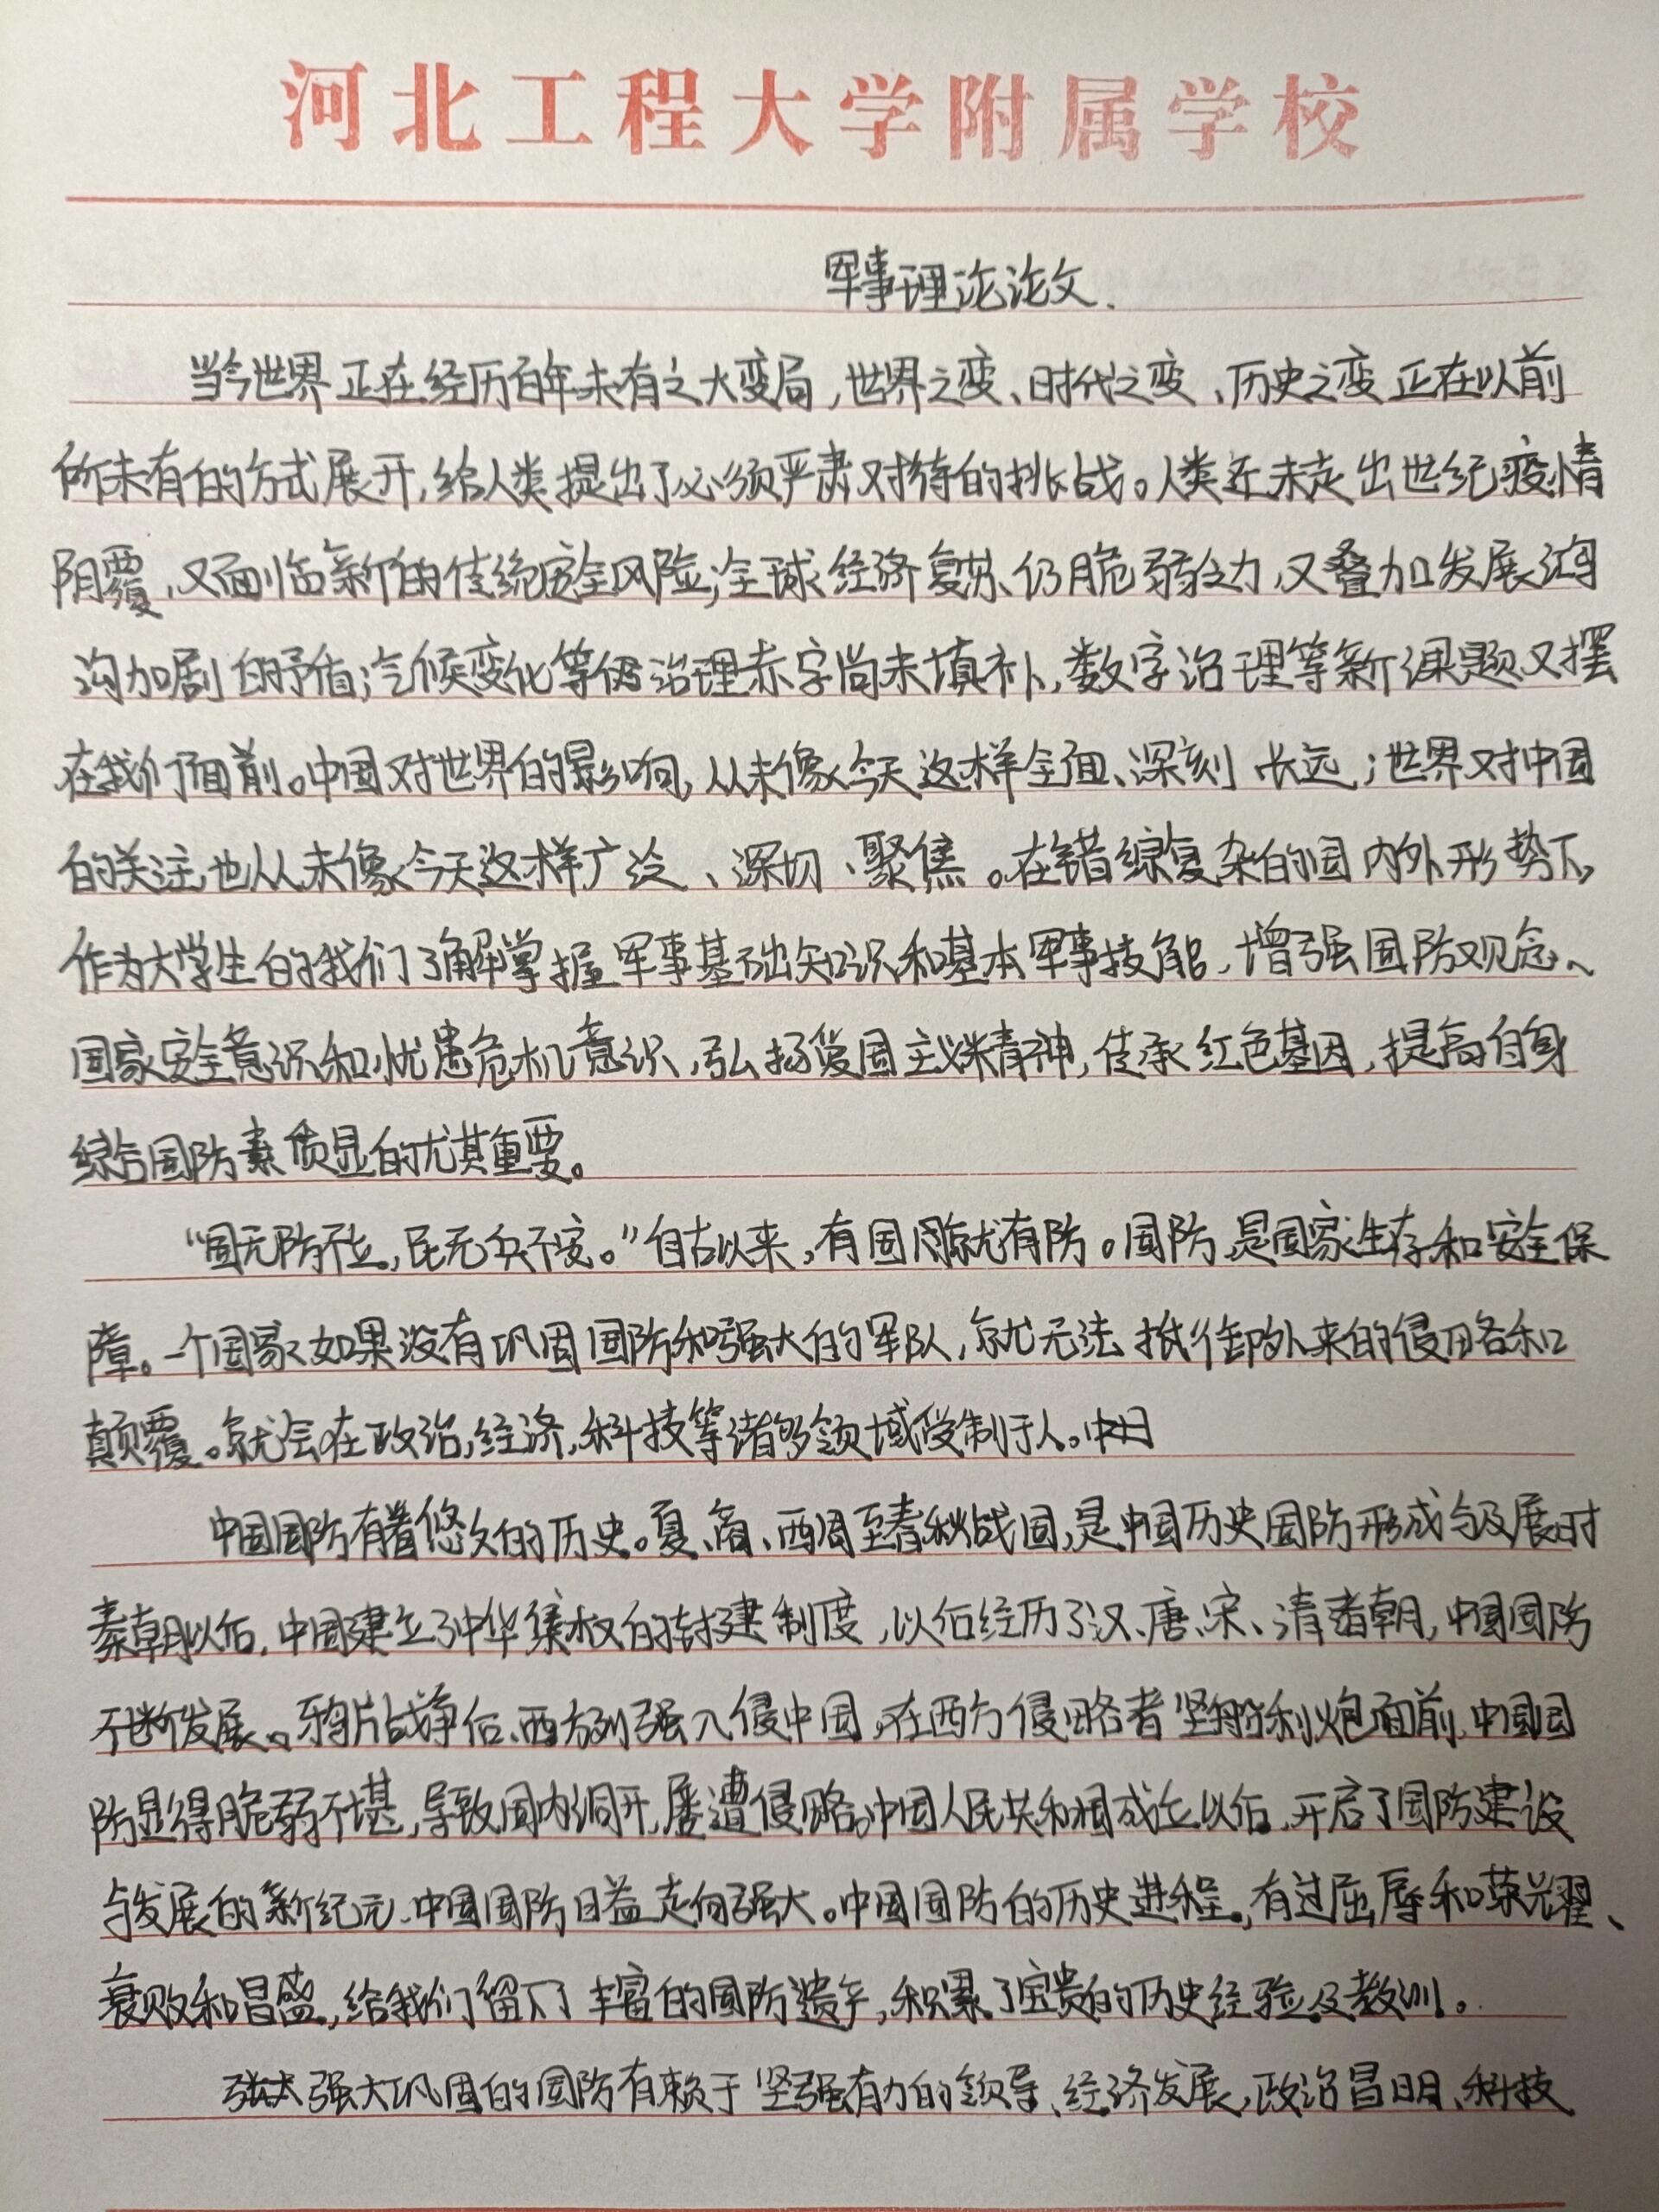 河北工程大学附属学校
军事理论论文.
当今世界正在经历百年未有之大变局,世界之变、时代之变、历史之变正在以前
所未有的方式展开,给人类提出了必须严肃对待的挑战。人类还未走出世纪疫情
阴覆,又面临新的传统安全风险;全球经济复苏仍脆弱乏力,又叠加发展鸿
沟加剧的矛盾;气候变化等治理赤字尚未填补,数字治理等新课题又摆
在我们面前。中国对世界的影响,从未像今天这样全面、深刻 长远;世界对中国
的关注,也从未像今天这样广泛、深切、聚焦。在错综复杂的国内外形势下,
作为大学生的我们了解掌握军事基础知识和基本军事技能,增强国防观念、
国家安全意识和忧患危机意识,弘扬爱国主义精神,传承红色基因,提高自身
综合国防素质显的尤其重要。
“国无防不立,民无兵不安。”自古以来,有国就有防。国防,是国家生存和安全保
障。一个国家如果没有巩固国防和强大的军队,就无法抵御外来的侵略和
颠覆。就会在政治,经济,科技等诸多领域受制于人。
中国国防有着悠久的历史。夏、商、西周至春秋战国,是中国历史国防形成与发展时
秦朝以后,中国建立了中华集权的封建制度,以后经历了汉、唐、宋、清诸朝,中国国防
不断发展。鸦片战争后,西方列强入侵中国,在西方侵略者坚船利炮面前,中国国
防显得脆弱不堪,导致国内洞开,屡遭侵略。中国人民共和国成立以后,开启了国防建设
与发展的新纪元,中国国防日益走向强大。中国国防的历史进程,有过屈辱和荣耀、
衰败和昌盛,给我们留下了丰富的国防遗产,积累了宝贵的历史经验及教训。
强大巩固的国防有赖于坚强有力的领导、经济发展,政治昌明、科技